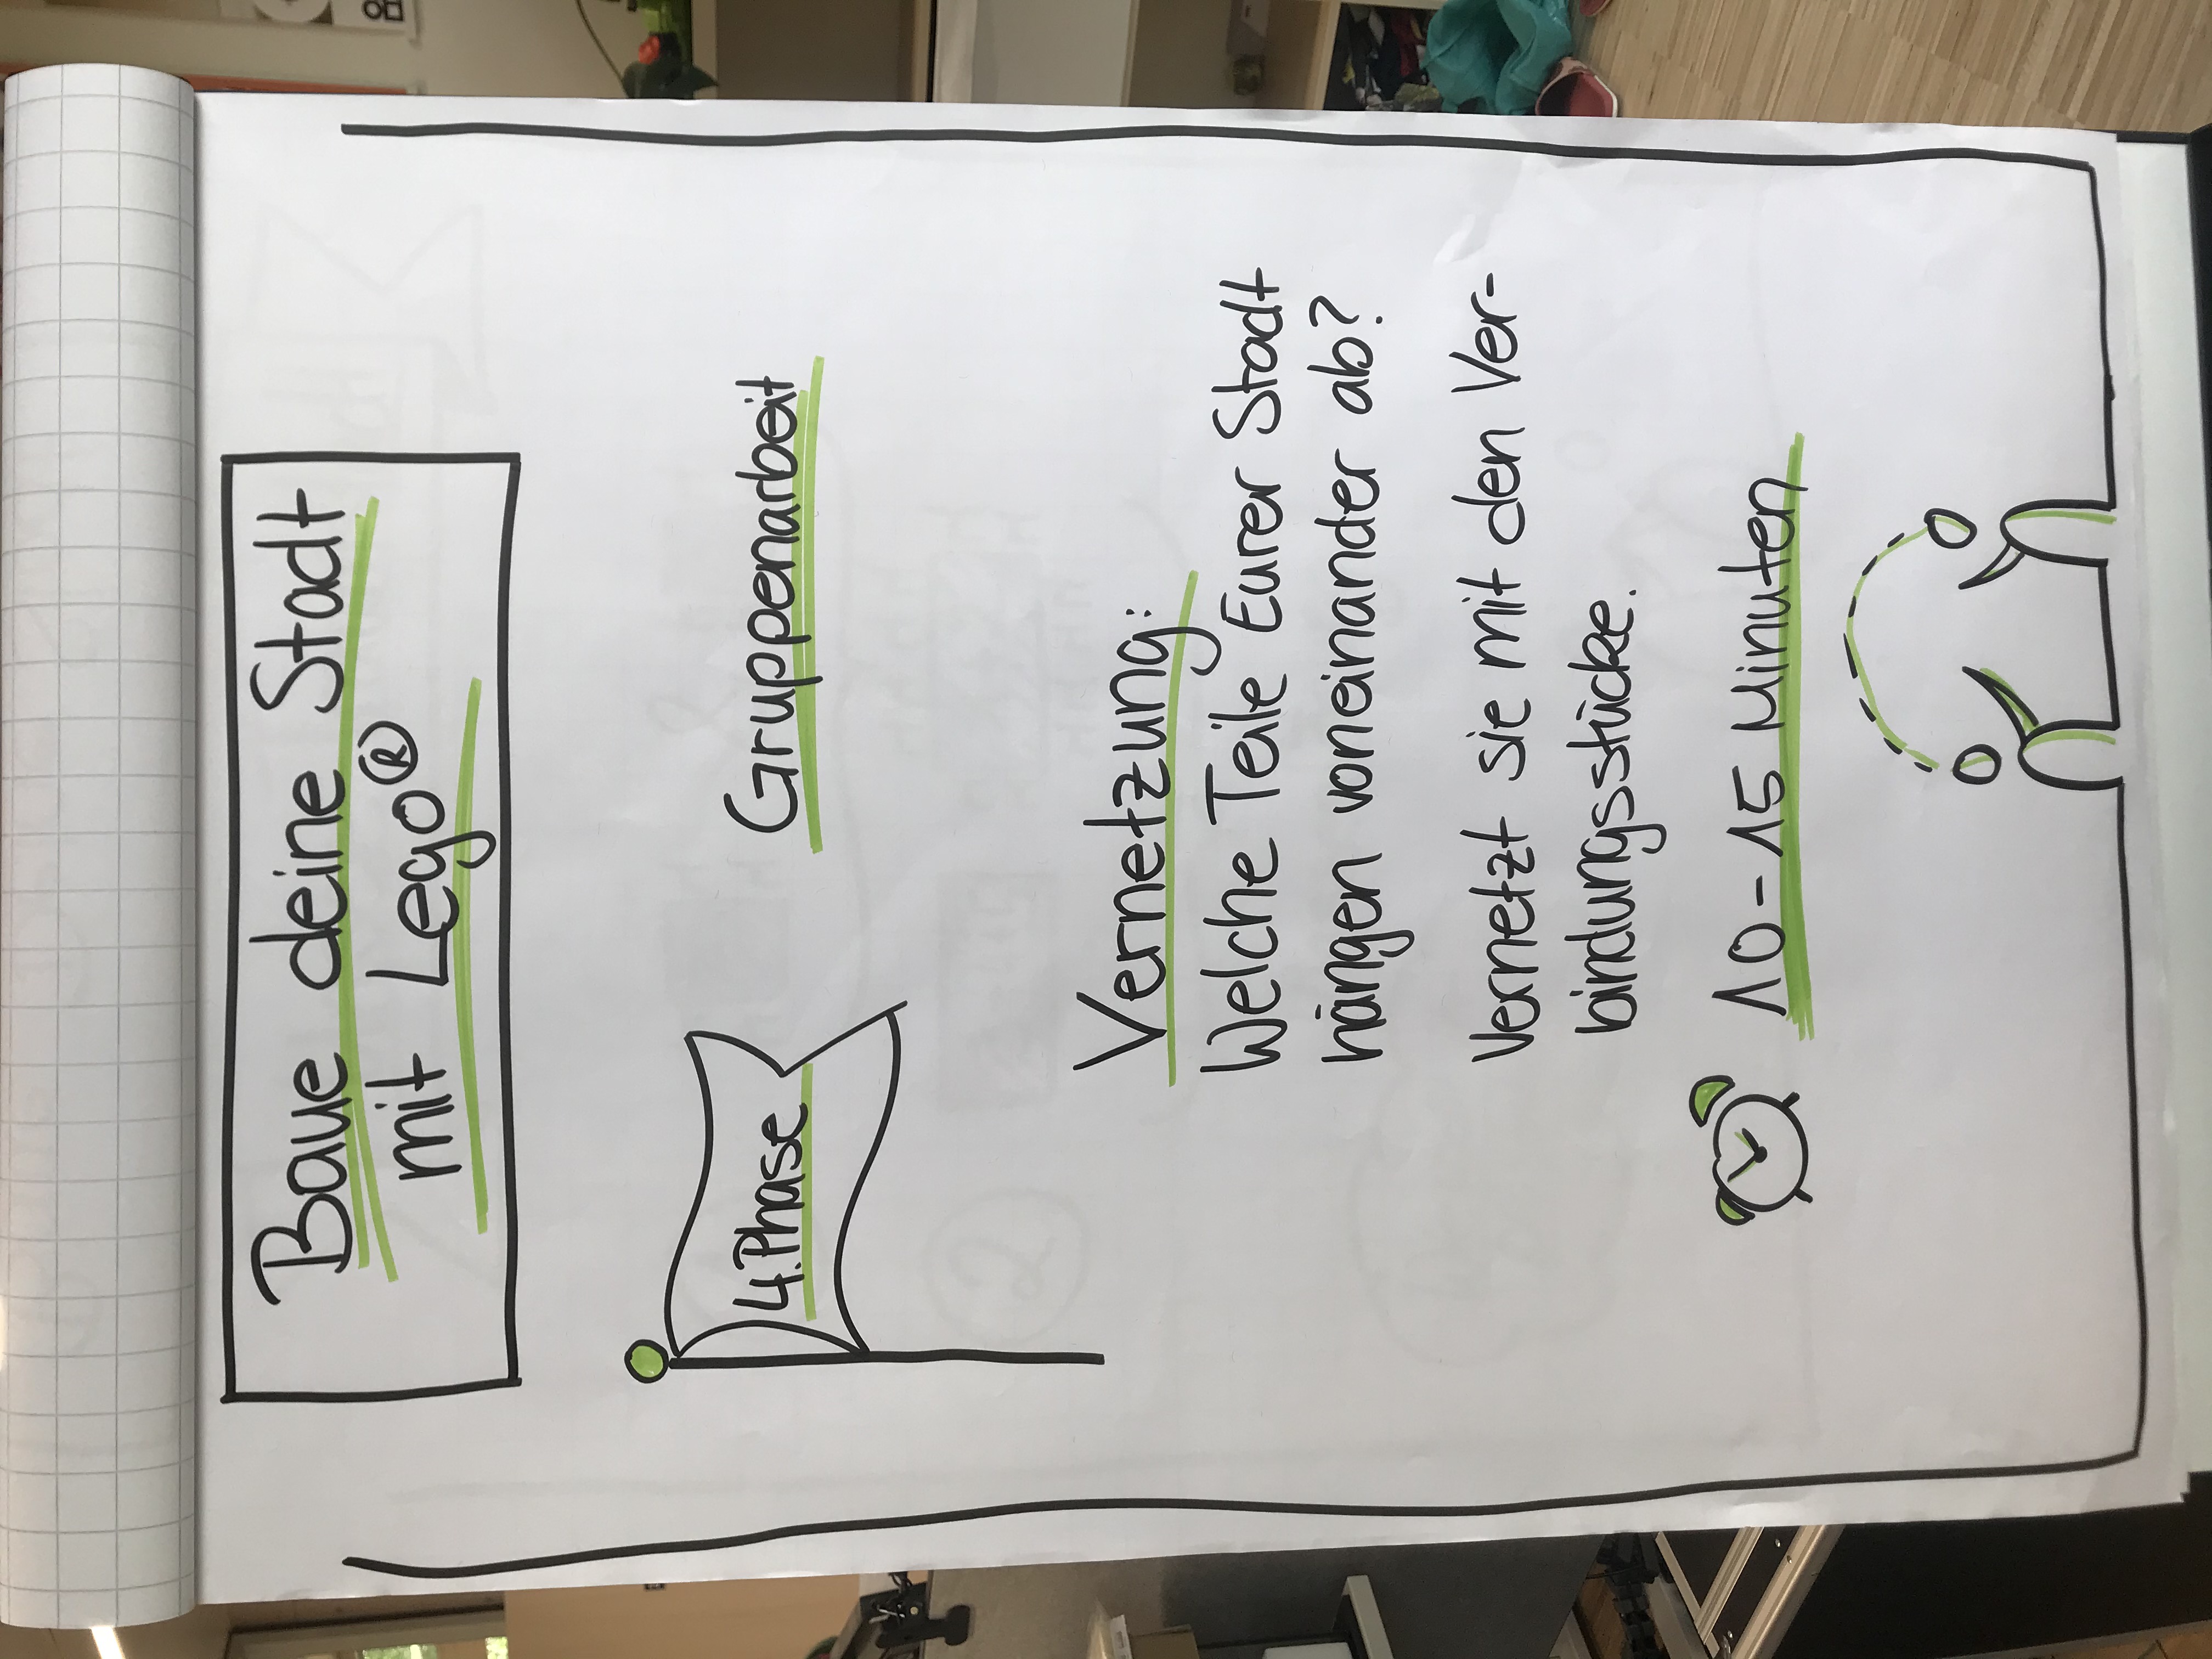 Baue deine Stadt
mit Lego®
4. Phase
Gruppenarbeit
Vernetzung:
Welche Teile Eurer Stadt
hängen voneinander ab?
Vernetzt sie mit den Ver-
bindungsstücke.
10-15 Minuten